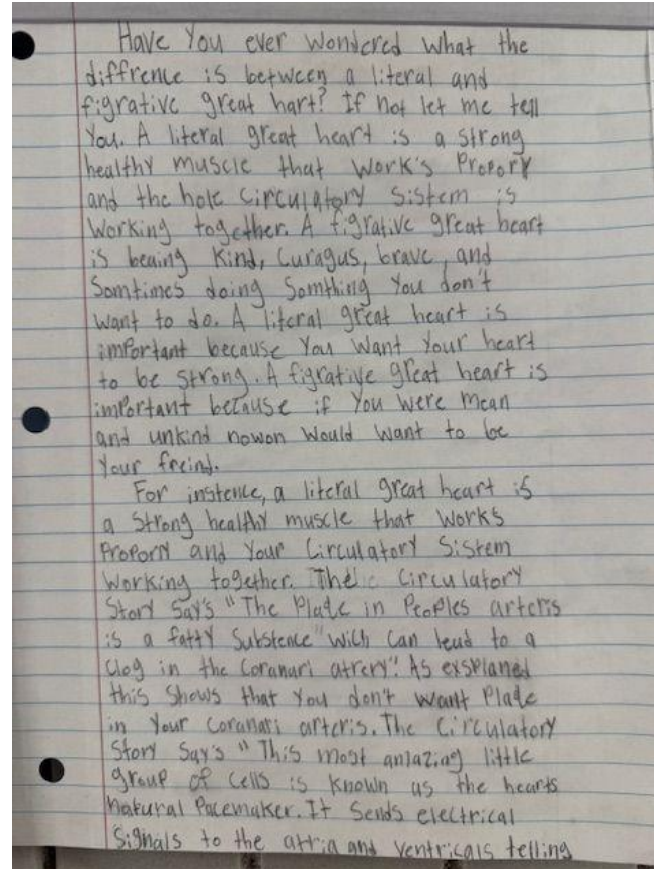 Have You ever Wondered What the
diffrence is between a literal and
figrative great hart? If not let me tell
You. A literal great heart is a strong
healthy muscle that Work's Propory
and the hole Circulatory Sistem is
Working together. A figrative great heart
is beaing Kind, Curagus, brave, and
Somtimes doing Somthing You don't
Want to do. A literal great heart is
important because You Want Your heart
to be Strong. A figrative great heart is
important because if You Were mean
and unkind nowon Would Want to be
Your freind.
For instence, a literal great heart is
a Strong healthy muscle that Works
Propory and Your Circulatory Sistem
Working together. The Circulatory
Story Say's "The Plate in Peoples arteris
is a fatty Substence" Wich Can lead to a
Clog in the Coranari atrery". As exsplaned
this Shows that You don't Want Plate
in Your Coranari arteris. The Circulatory
Story Say's "This most amazing little
group of Cells is Known as the hearts
natural Pacemaker. It Sends electrical
Signals to the attria and Ventricals telling